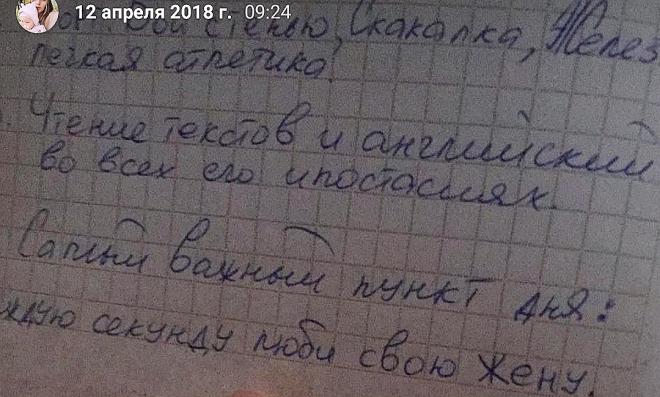 12 апреля 2018 г. 09:24
Скакалка,
легкая атлетика.
Чтение текстов и английский
во всех его ипостасиях.
Самый важный пункт дня:
секунду люби свою жену.